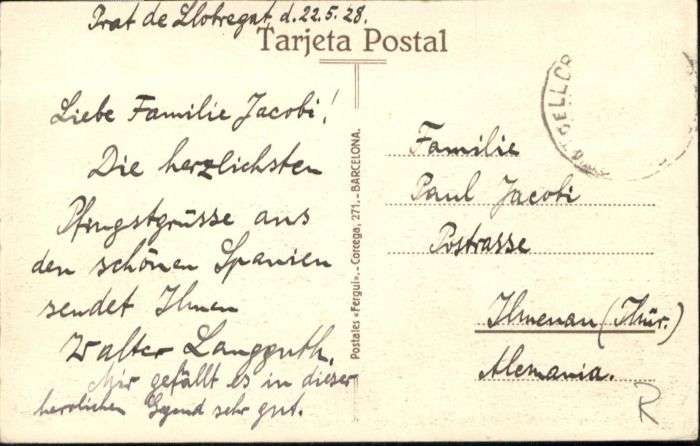 Prat de Llobregat, d. 22.5.28.
Tarjeta Postal
Liebe Familie Jacobi!
Die herzlichsten
Pfingstgrüsse aus
den schönen Spanien
sendet Ihnen
Walter Langguth.
Mir gefällt es in dieser
herrlichen Gegend sehr gut.
Postales «Fergui».- Corcega, 271.-BARCELONA.
Familie
Paul Jacobi
Postrasse
Ilmenau (Thür.)
Alemania.
R